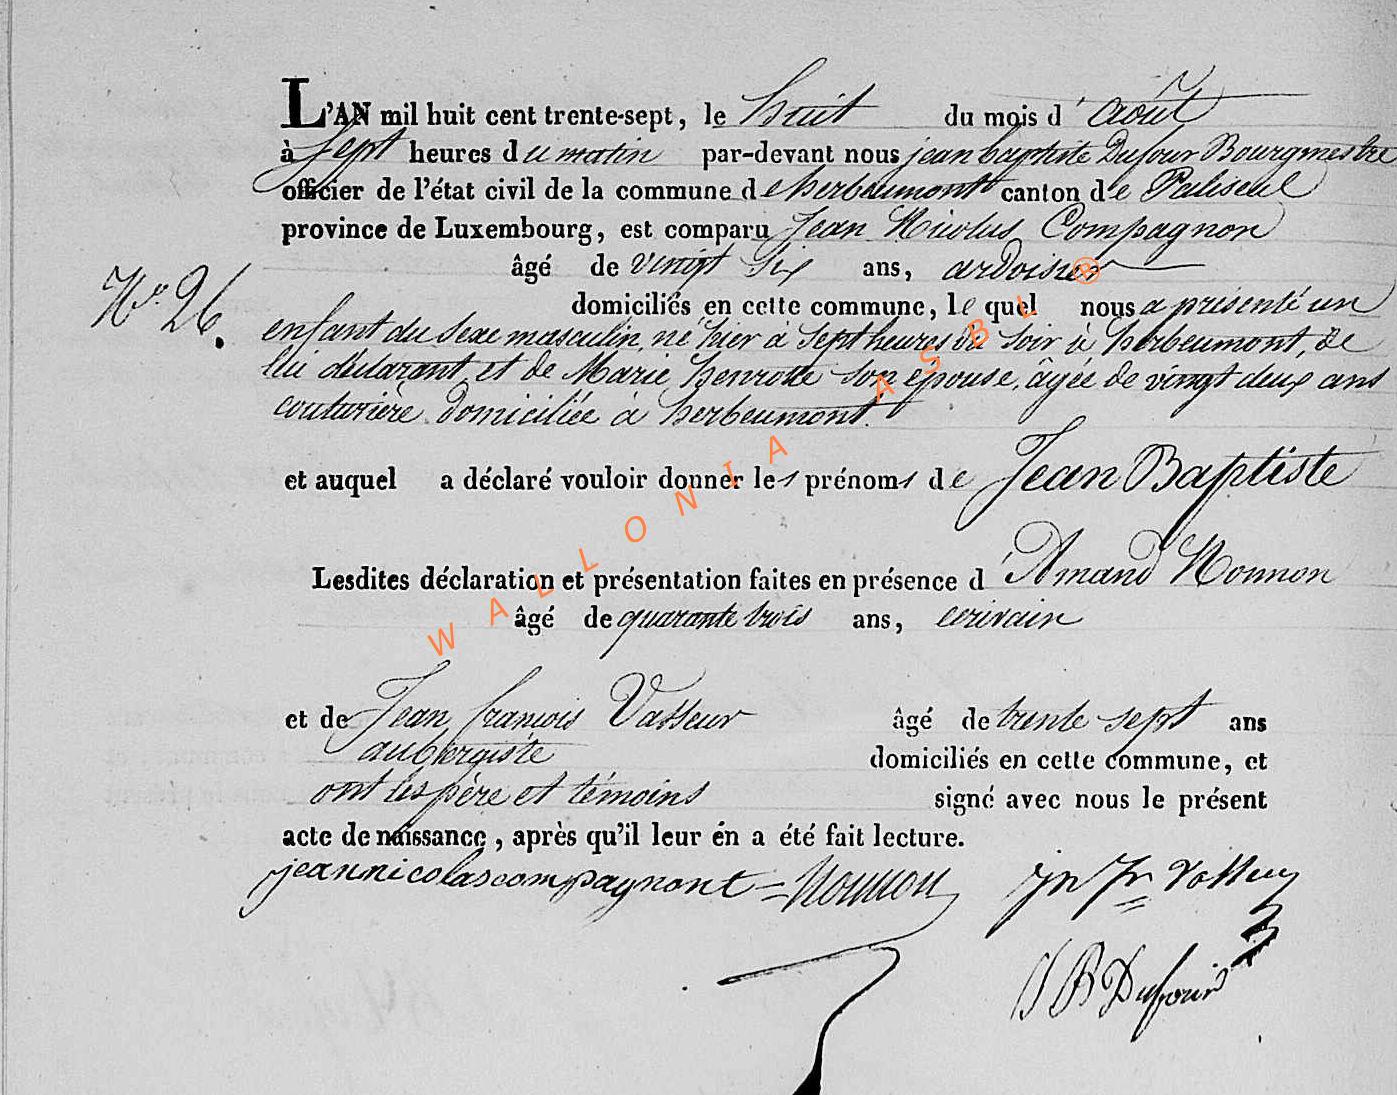 L'AN mil huit cent trente-sept, le huit du mois d'août
à sept heures du matin par-devant nous jean baptiste Dufour Bourgmestre
officier de l'état civil de la commune de herbeumont canton de Paliseul
province de Luxembourg, est comparu Jean Nicolas Compagnon
âgé de vingt six ans, ardoisier
N.° 26.
domiciliés en cette commune, le quel nous a présenté un
enfant du sexe masculin, né hier à sept heures du soir à herbeumont, de
lui déclarant et de Marie henrotte son épouse, âgée de vingt deux ans
couturière domiciliée à herbeumont.
et auquel a déclaré vouloir donner les prénoms de Jean Baptiste
Lesdites déclaration et présentation faites en présence d'Amand Nonnon
âgé de quarante trois ans, écrivain
et de Jean françois Vasseur âgé de trente sept ans
aubergiste domiciliés en cette commune, et
ont les père et témoins signé avec nous le présent
acte de naissance, après qu'il leur en a été fait lecture.
jeannicolascompagnont Nonnon jn fr Vasseur
J B Dufour
WALLONIA ASBL ®